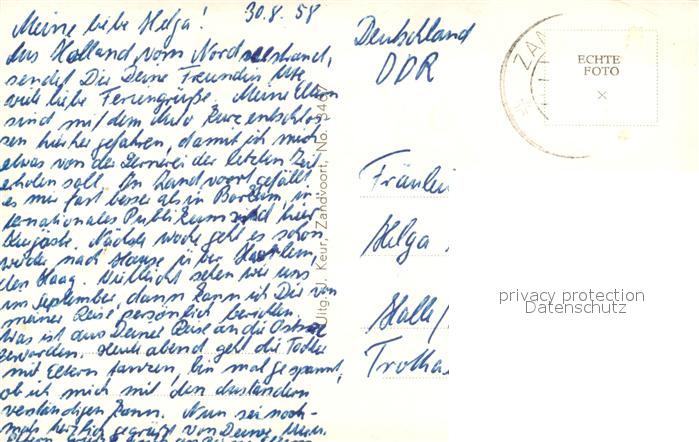 30.8.58
Meine liebe Helga!
Aus Holland vom Nordseestrand,
sendet Dir Deine Freundin Ute
viele liebe Feriengrüße. Meine Eltern
sind mit dem Auto kurz entschlos-
sen hierher gefahren, damit ich mich
etwas von der Lernerei der letzten Zeit
erholen soll. In Zandvoort gefällt
es mir fast besser als in Borkum, in-
ternationales Publikum sind hier
Badegäste. Nächste Woche geht es schon
wieder nach Hause über Haarlem,
den Haag. Vielleicht sehen wir uns
im September, dann kann ich Dir von
meiner Reise persönlich berichten.
Was ist aus Deiner Reise an die Ostsee
geworden. Heute abend geht die Tochter
mit Eltern tanzen, bin mal gespannt,
ob ich mich mit den Ausländern
verständigen kann. Nun sei noch-
mals herzlich gegrüßt von Deiner
Uitg. J. Keur, Zandvoort, No.
Deutschland
DDR
ZAN
ECHTE
FOTO
Fräulei
Helga
Halle/
Trotha
privacy protection
Datenschutz